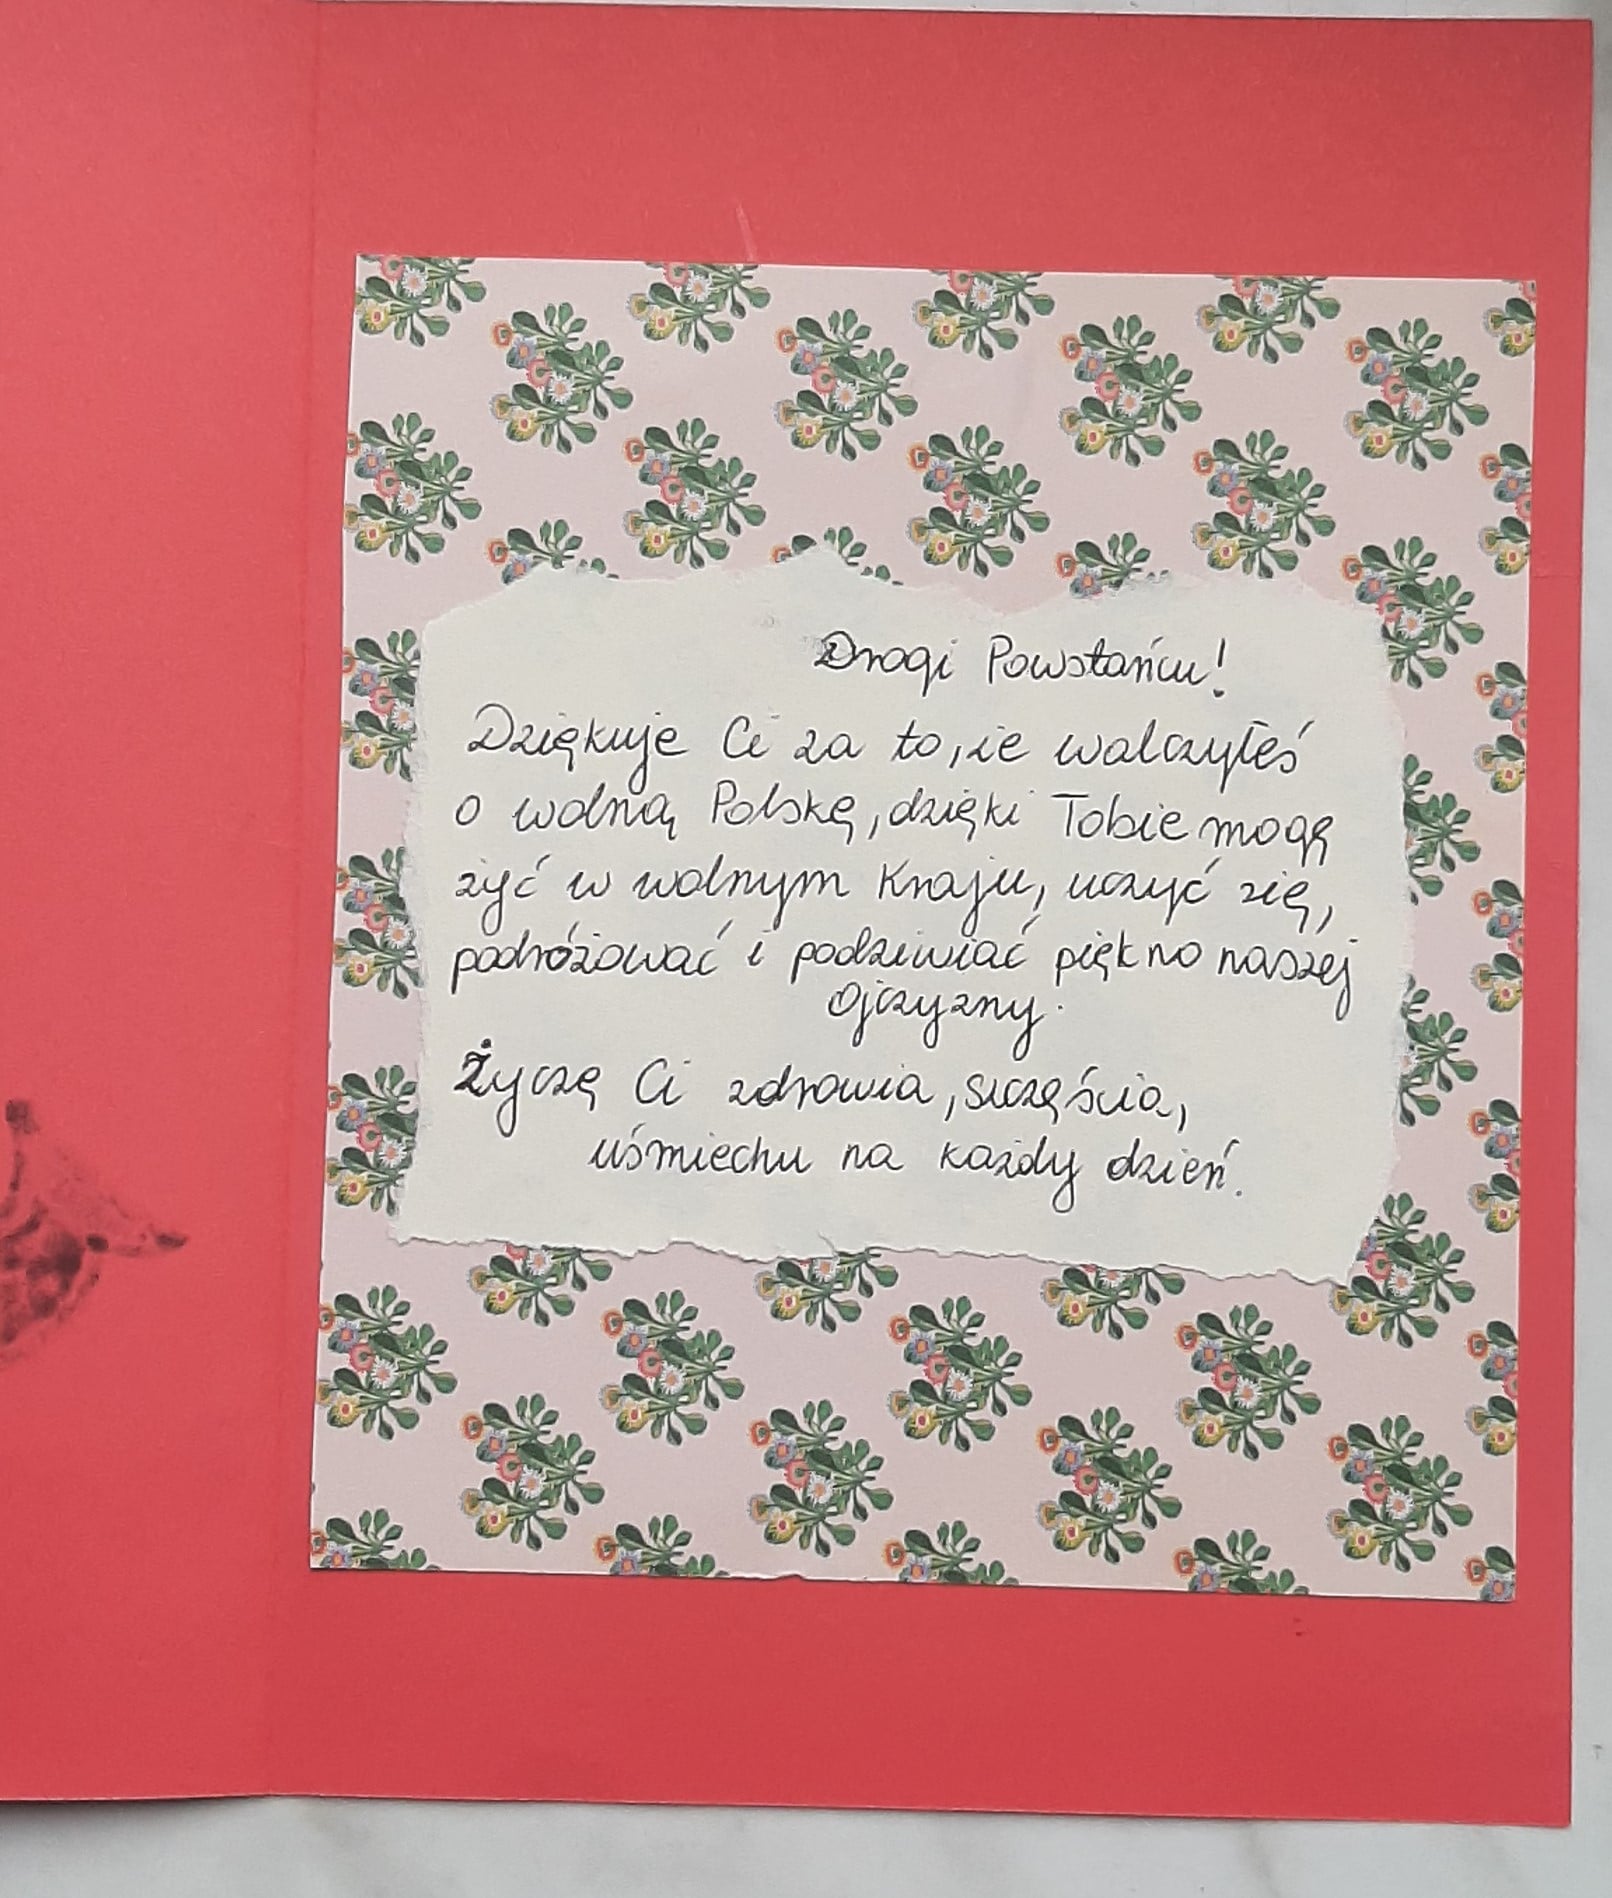 Drogi Powstańcu!
Dziękuje Ci za to, że walczyłeś
o wolną Polskę, dzięki Tobie mogę
żyć w wolnym Kraju, uczyć się,
podróżować i podziwiać piękno naszej
ojczyzny.
Życzę Ci zdrowia, szczęścia,
uśmiechu na każdy dzień.